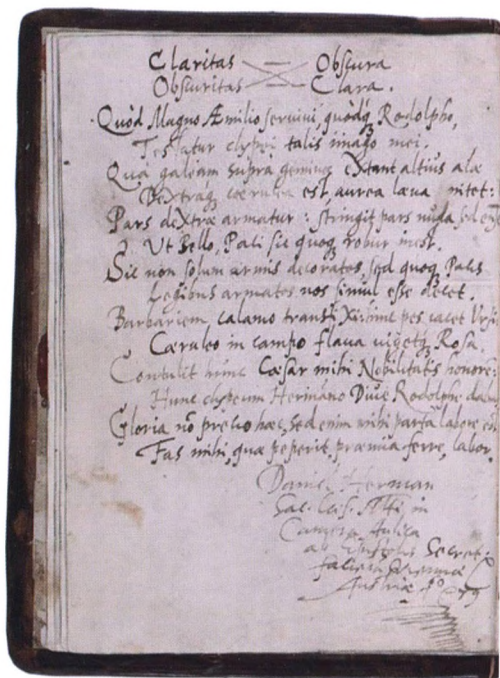 Claritas Obscura
Obscuritas Clara.
Quòd Magno Æmilio servivi, quòdq3 Rodolpho,
Testatur clypei talis imago mei.
Quà galeam supra geminæ extant altius alæ
Dextraq3 cœrulea est, aurea læva nitet:
Pars dextræ armatur: stringit pars nuda sed
Ut Bello, Paci sic quoq3 robur inest.
Sic non solum armis decoratos, sed quoq3 Pacis
Legibus armatos nos simul esse decet.
Barbariem calamo pes Ursi
Cæruleo in campo flava vigetq3 Rosa.
Contulit hunc Cæsar mihi Nobilitatis honore:
Hunc clypeum Hermanno Dive Rodolphe
Gloria nō precio hæc, sed enim mihi parta labore est
Fas mihi, quæ peperit, præmia ferre, labor.
Daniel Herman
Sac. Cæs. Mtis in
Camera Aulica
ab Epistolis Secret:
faciebat Viennæ
Austriæ